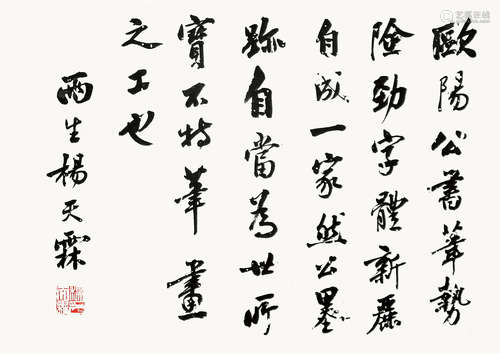 歐陽公書筆勢
險勁字體新麗
自成一家然公墨
跡自當為世所
寶不特筆畫
之工也
雨生楊天霖